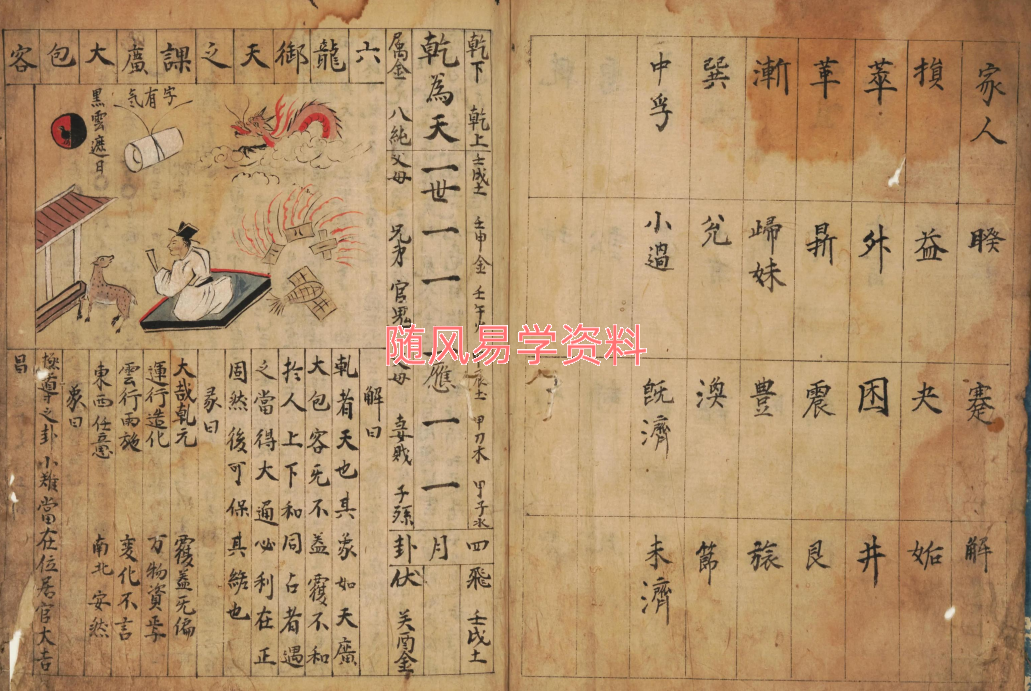 家人 睽 蹇 解
損 益 夬 姤
萃 升 困 井
革 鼎 震 艮
漸 歸妹 豐 旅
巽 兌 渙 節
中孚 小過 既濟 未濟
乾下 乾上 壬戌土 壬申金 壬午火 甲辰土 甲刀木 甲子水 四 飛 壬戌土
乾為天 世 應 月
属金 八純 父母 兄弟 官鬼 父母 妻財 子孫 卦伏
六龍御天之課廣大包容
字有氣
黑雲遮日
解曰
乹者天也其象如天廣
大包容旡不益覆不和
扵人上下和同占者遇
之當得大通必利在正
固然後可保其終也
彖曰
大哉乹元 覆益旡偏
運行造化 万物資
雲行雨施 变化不言
東西任意 南北安然
象曰
之卦 小雅當在位居官大吉
昌
随风易学资料